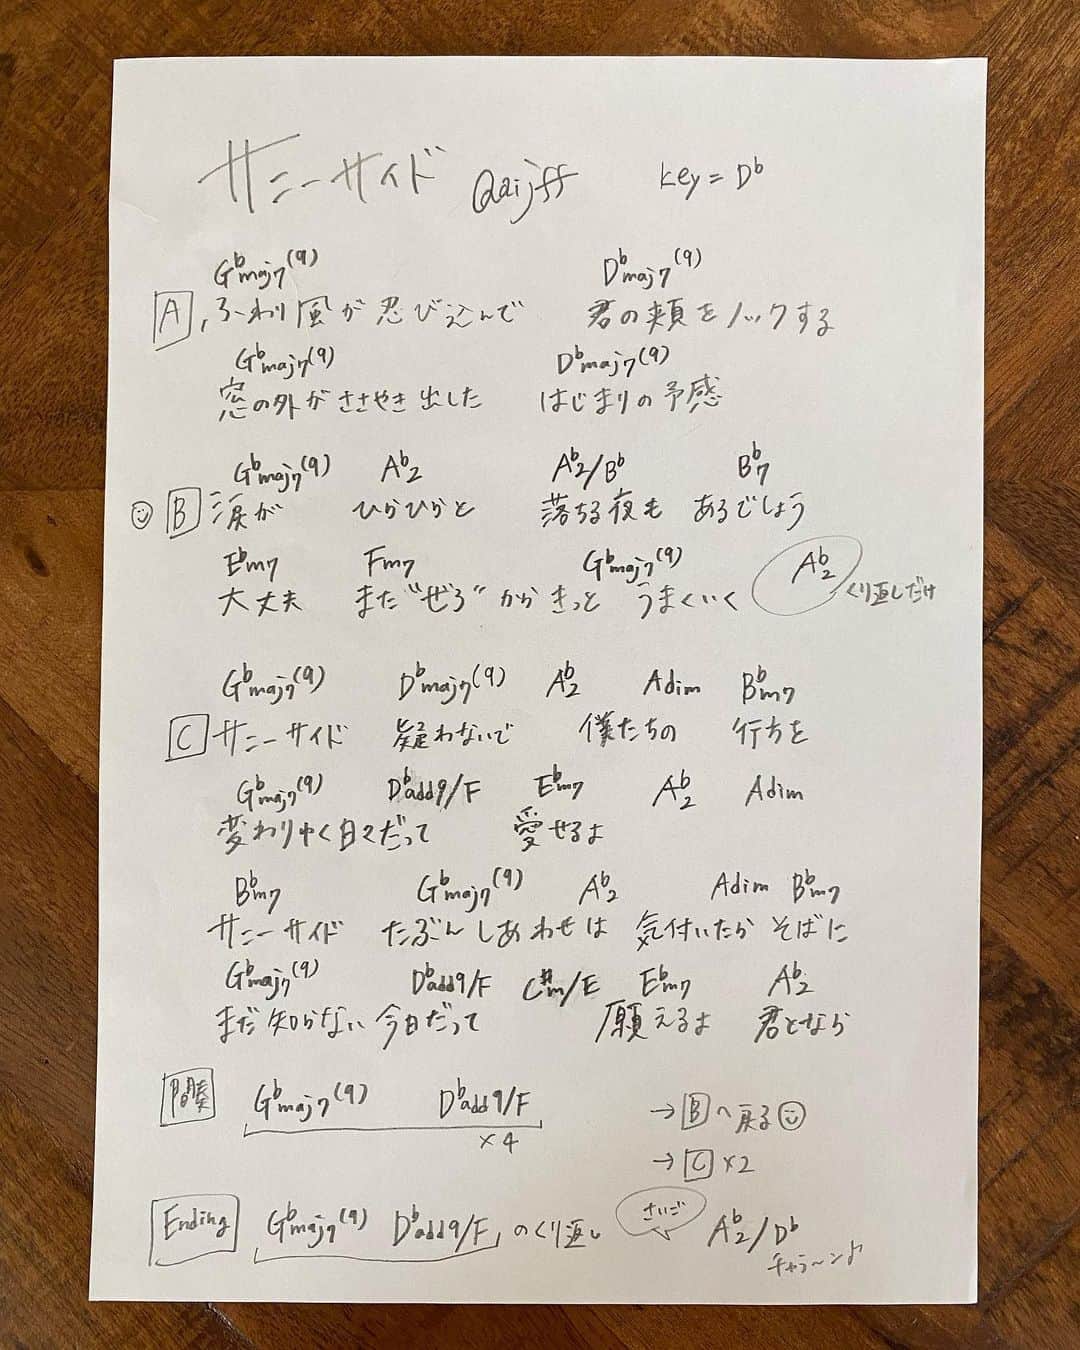 サニーサイド Qaijff key=D♭
G♭maj7(9) D♭maj7(9)
A ふわり風が忍び込んで 君の頬をノックする
G♭maj7(9) D♭maj7(9)
窓の外がささやき出した はじまりの予感
G♭maj7(9) A♭2 A♭2/B♭ B♭7
B 涙が ひらひらと 落ちる夜も あるでしょう
E♭m7 Fm7 G♭maj7(9) A♭2
大丈夫 まだ"ぜろ"から きっと うまくいく くり返しだけ
G♭maj7(9) D♭maj7(9) A♭2 Adim B♭m7
C サニーサイド 疑わないで 僕たちの 行方を
G♭maj7(9) D♭add9/F E♭m7 A♭2 Adim
変わりゆく日々だって 愛せるよ
B♭m7 G♭maj7(9) A♭2 Adim B♭m7
サニーサイド たぶんしあわせは 気付いたら そばに
G♭maj7(9) D♭add9/F C#m/E E♭m7 A♭2
まだ知らない今日だって 願えるよ 君となら
間奏 G♭maj7(9) D♭add9/F
×4
→Bへ戻る
→C×2
Ending G♭maj7(9) D♭add9/F のくり返し さいご A♭2/D♭
チャラ〜ン♪